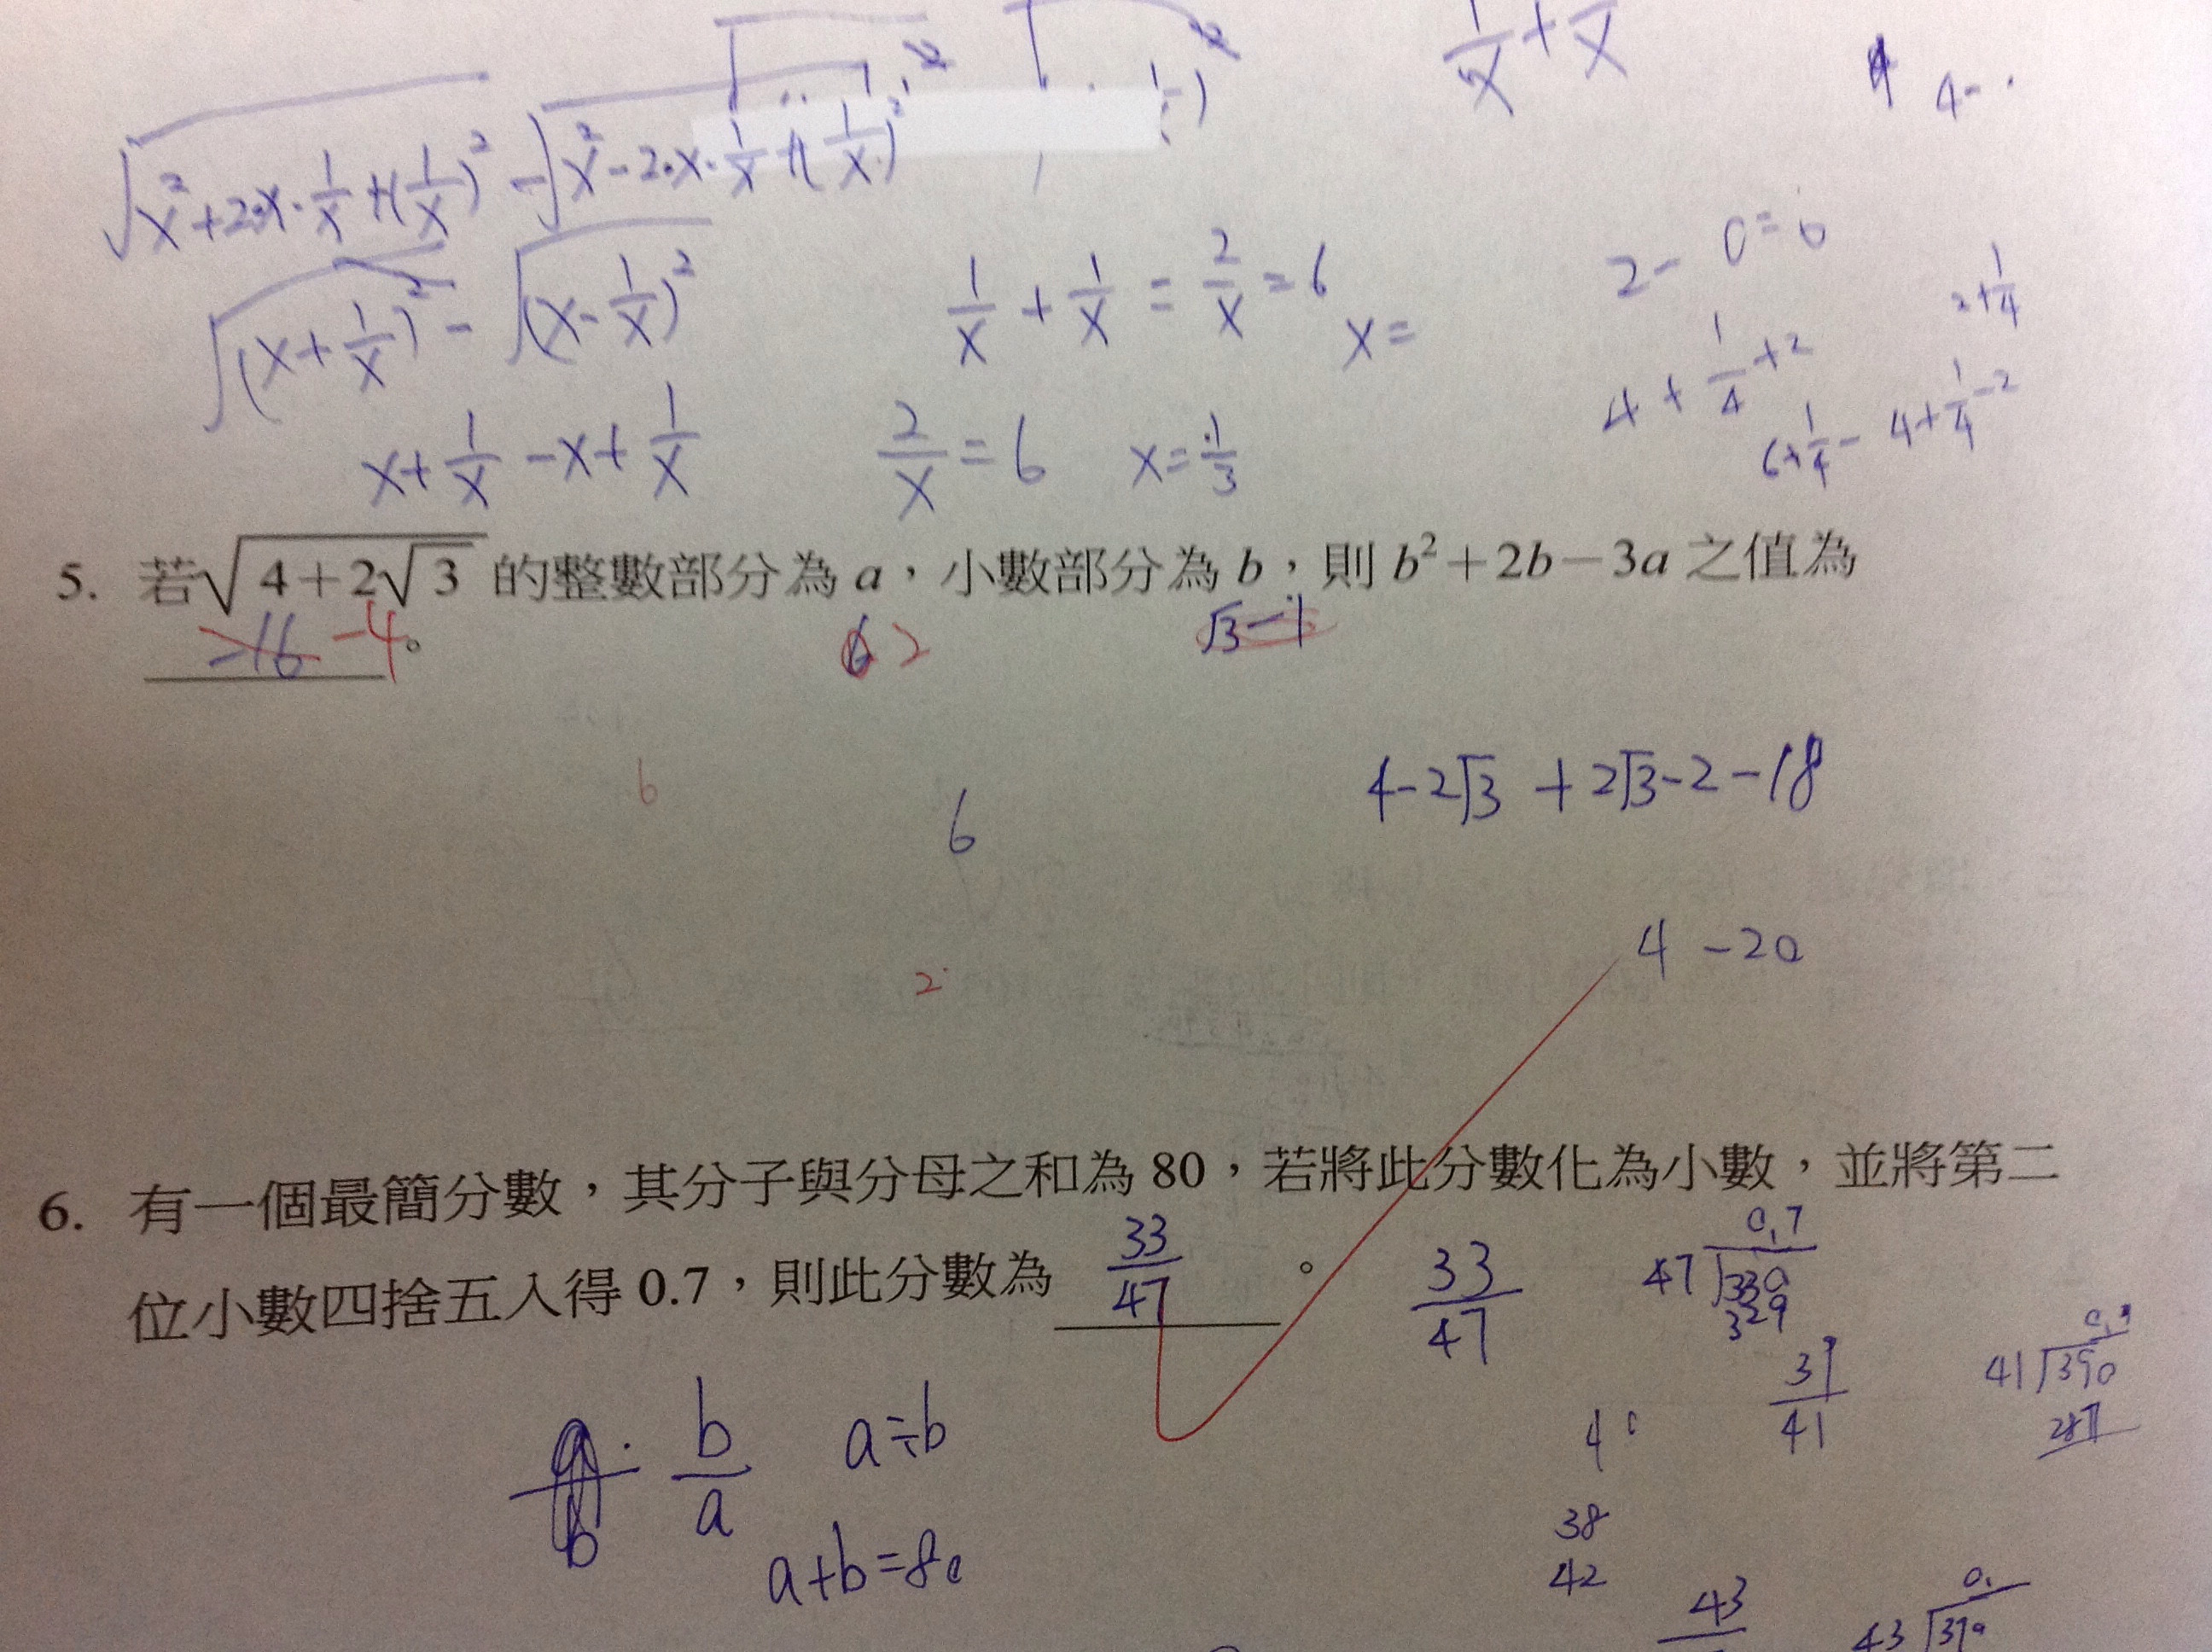 1/x + 1/x
4 4-
√(x²+2·x·1/x+(1/x)²) - √(x²-2·x·1/x+(1/x)²)
2 - 0 = 6
√((x+1/x)²) - √((x-1/x)²)
1/x + 1/x = 2/x = 6
x =
2+1/4
4+1/4+2
6+1/4 - 4+1/4-2
x+1/x -x+1/x
2/x = 6 x = 1/3
5. 若√(4+2√3) 的整數部分為 a，小數部分為 b，則 b²+2b-3a 之值為
-16 -4。
6 2
√3-1
6
6
4-2√3 +2√3-2-18
2
4 -20
6. 有一個最簡分數，其分子與分母之和為 80，若將此分數化為小數，並將第二
位小數四捨五入得 0.7，則此分數為 33/47 。
33/47
0.7
47 330
329
39/41
41 390
b/a
a÷b
a+b=80
38
42
43
0.
43